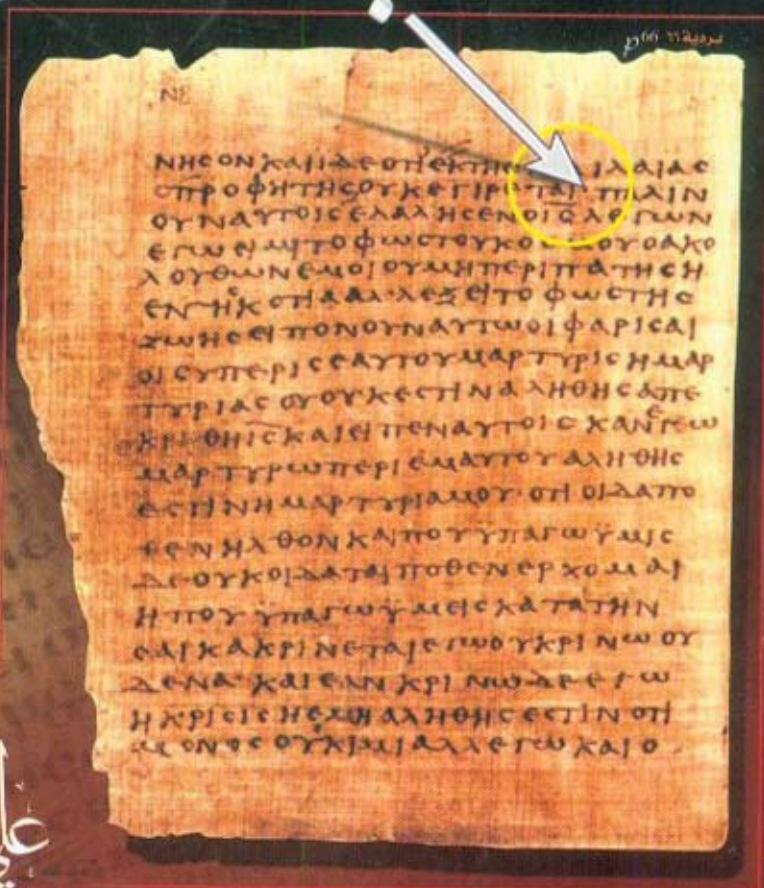 ΝΗCΟΝΚΑΙΙΔΕΟΤΙΕΚΤΗC ΙΛΑΙΑC
ΟΠΡΟΦΗΤΗCΟΥΚΕΓΙΡΕΤΑΙ·ΠΑΛΙΝ
ΟΥΝΑΥΤΟΙCΕΛΑΛΗCΕΝΟΙ̅C̅ΛΕΓΩΝ
ΕΓΩΕΙΜΙΤΟΦΩCΤΟΥΚΟ ΟΥΟΑΚΟ
ΛΟΥΘΩΝΕΜΟΙΟΥΜΗΠΕΡΙΠΑΤΗCΗ
ΕΝΤΗCΚΟΤΙΑΑΛ·ΛΕΞΕΙΤΟΦΩCΤΗC
ΖΩΗCΕΙΠΟΝΟΥΝΑΥΤΩΟΙΦΑΡΙCΑΙ
ΟΙCΥΠΕΡΙCΕΑΥΤΟΥΜΑΡΤΥΡΙCΗΜΑΡ
ΤΥΡΙΑCΟΥΟΥΚΕCΤΙΝΑΛΗΘΗCΑΠΕ
ΚΡΙΘΗΙ̅C̅ΚΑΙΕΙΠΕΝΑΥΤΟΙCΚΑΝΕΓΩ
ΜΑΡΤΥΡΩΠΕΡΙΕΜΑΥΤΟΥΑΛΗΘΗC
ΕCΤΙΝΗΜΑΡΤΥΡΙΑΜΟΥ·ΟΤΙΟΙΔΑΠΟ
ΘΕΝΗΛΘΟΝΚΑΙΠΟΥΥΠΑΓΩΫΜΙC
ΔΕΟΥΚΟΙΔΑΤΑΙΠΟΘΕΝΕΡΧΟΜΑΙ
ΗΠΟΥΫΠΑΓΩΫΜΕΙCΚΑΤΑΤΗΝ
CΑΙΚΑΚΡΙΝΕΤΑΙΕΓΩΟΥΚΡΙΝΩΟΥ
ΔΕΝΑ·ΚΑΙΕΑΝΚΡΙΝΩΔΕΕΓΩ
ΗΚΡΙCΙCΗΕΜΗΑΛΗΘΗCΕCΤΙΝΟΤΙ
ΜΟΝΟCΟΥΚΙΜΙΑΛΛΕΓΩΚΑΙΟ